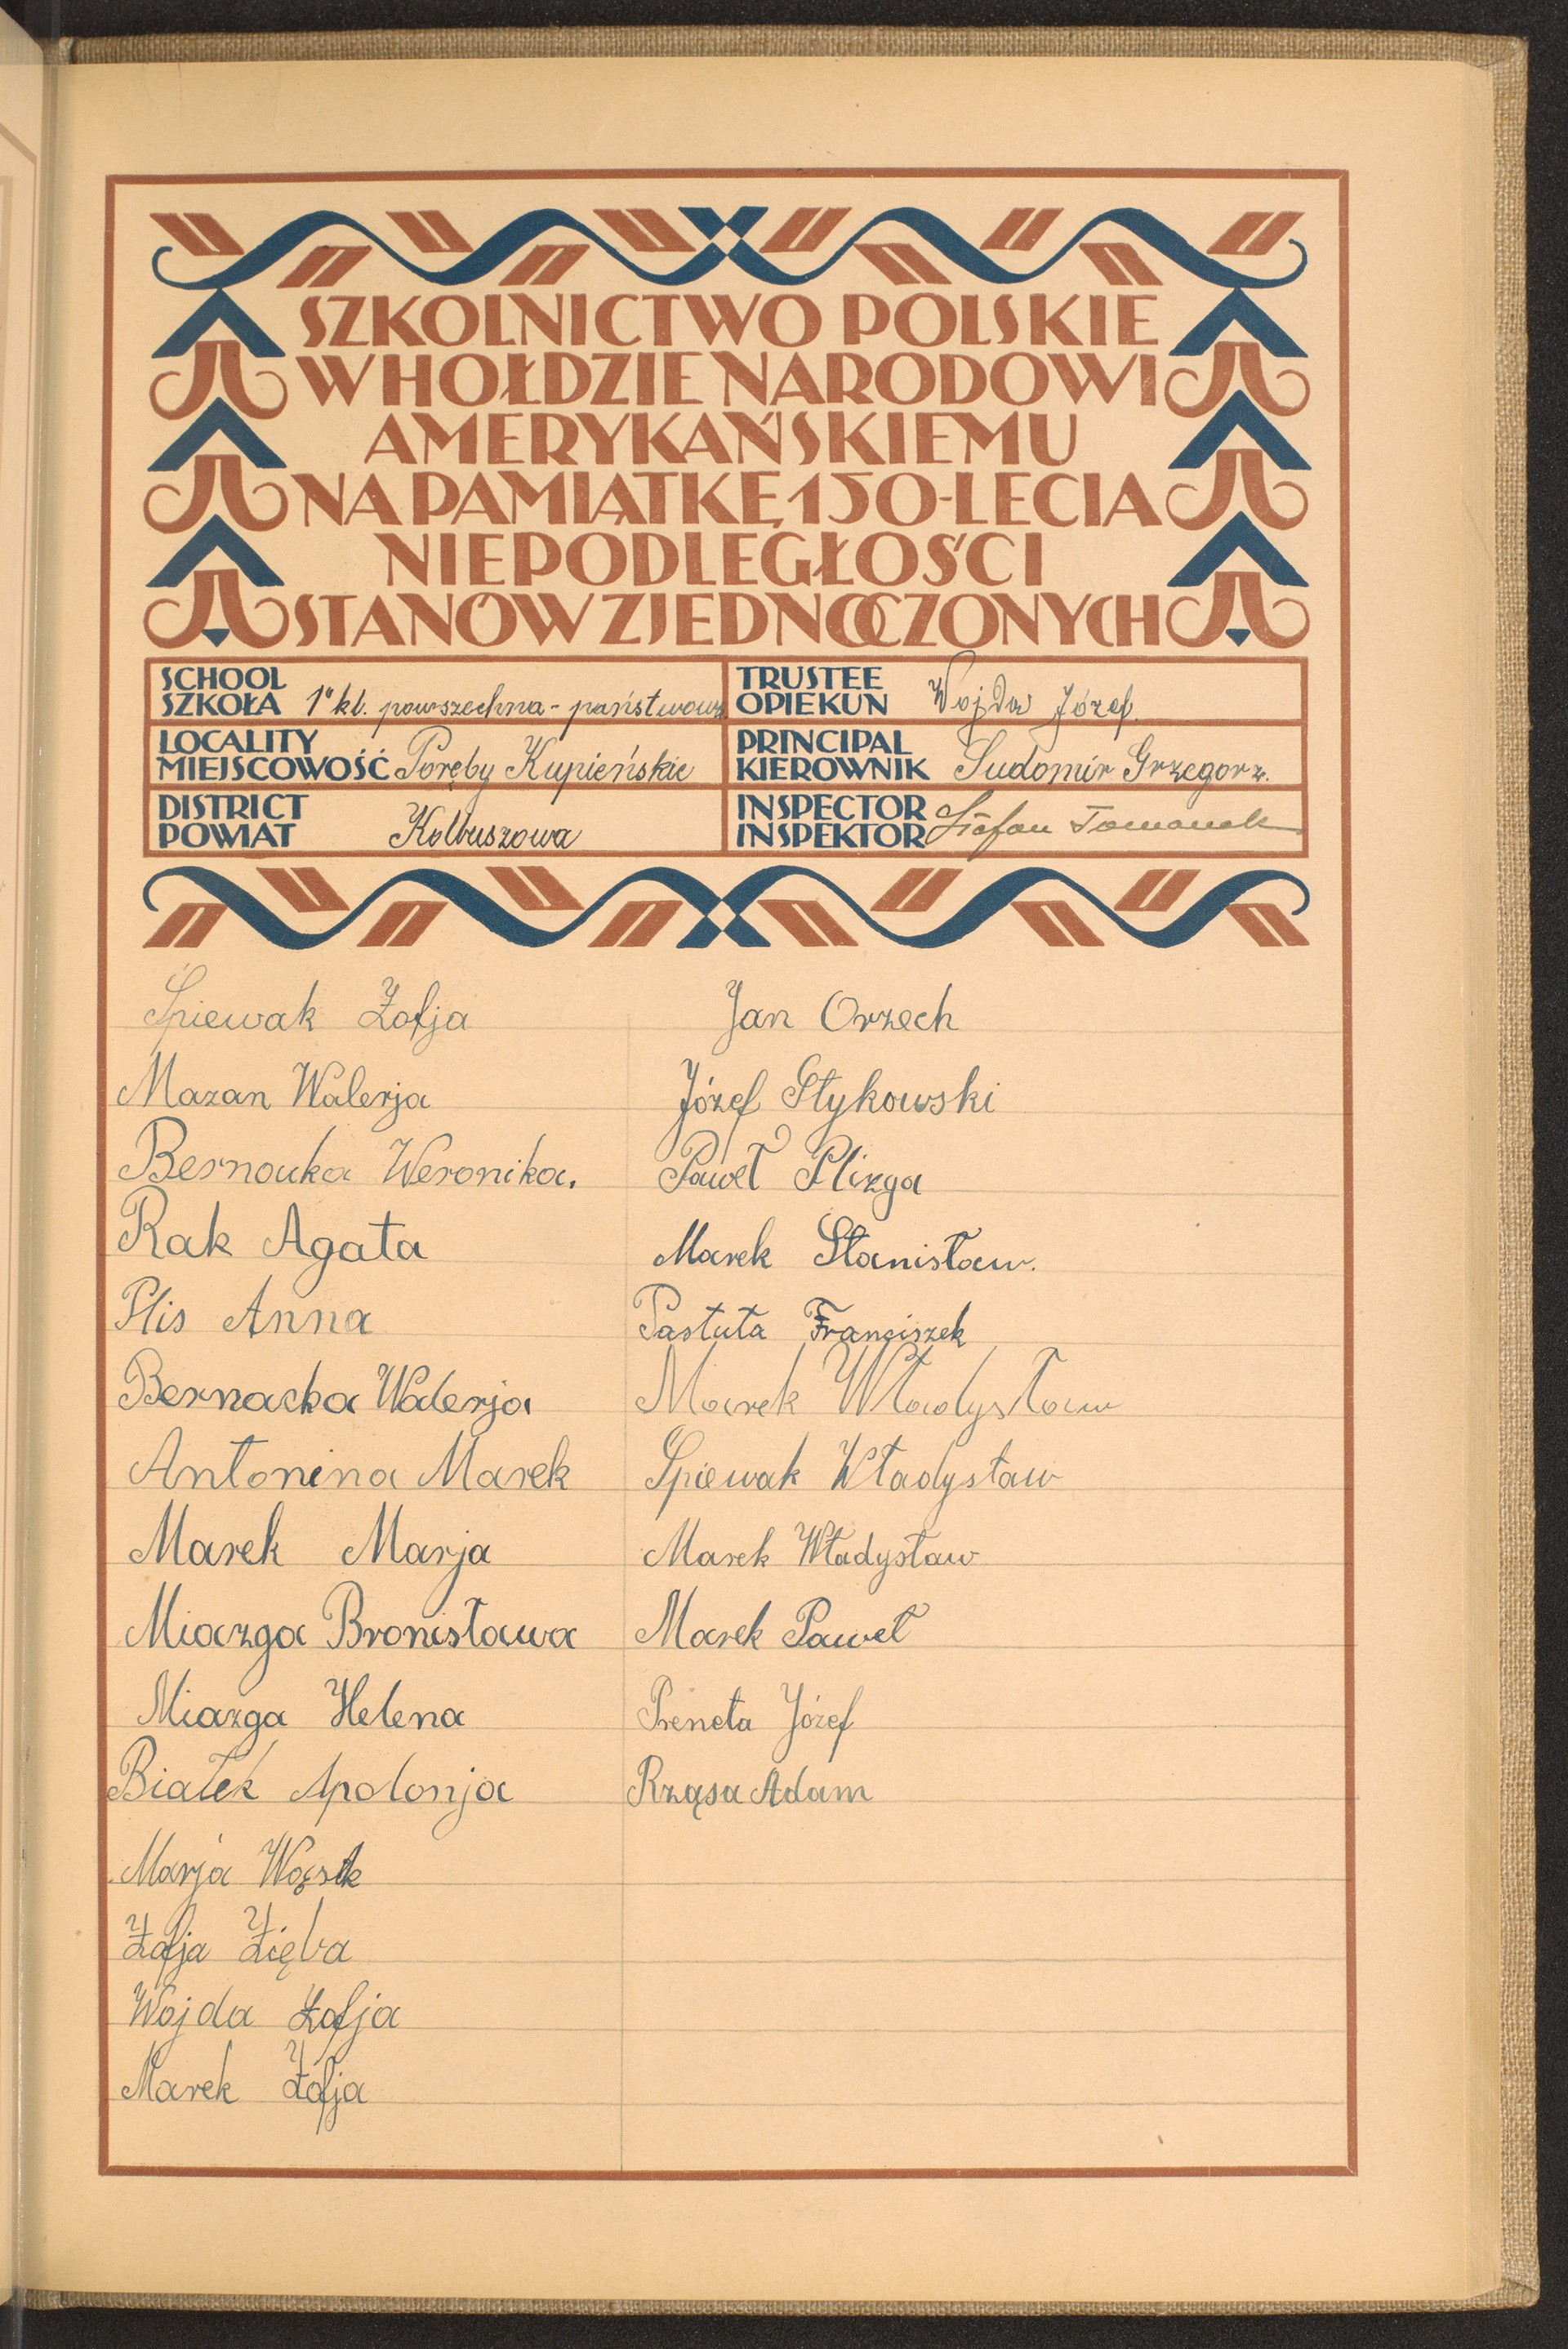 SZKOLNICTWO POLSKIE
W HOŁDZIE NARODOWI
AMERYKAŃSKIEMU
NA PAMIĄTKĘ 150-LECIA
NIEPODLEGŁOŚCI
STANÓW ZJEDNOCZONYCH
SCHOOL
SZKOŁA 1º kl. powszechna - państwowa
LOCALITY
MIEJSCOWOŚĆ Poręby Kupieńskie
DISTRICT
POWIAT Kolbuszowa
TRUSTEE
OPIEKUN Wojda Józef
PRINCIPAL
KIEROWNIK Sudomir Grzegorz.
INSPECTOR
INSPEKTOR Stefan Tomanek
Śpiewak Zofja
Mazan Walerja
Weronika.
Rak Agata
Plis Anna
Bernacka Walerja
Antonina Marek
Marek Marja
Miazga Bronisława
Miazga Helena
Białek Apolonja
Marja
Zofja Zięba
Wojda Zofja
Marek Zofja
Jan Orzech
Józef Stykowski
Paweł Plizga
Marek Stanisław.
Pastuła Franciszek
Marek Władysław
Śpiewak Władysław
Marek Władysław
Marek Paweł
Preneta Józef
Rząsa Adam